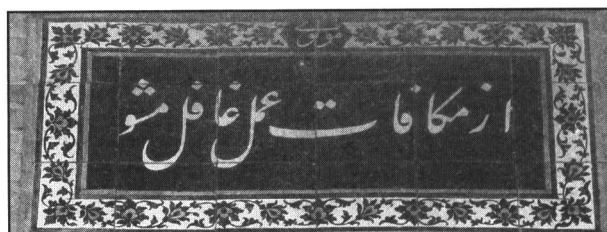 از مکافات عمل غافل مشو